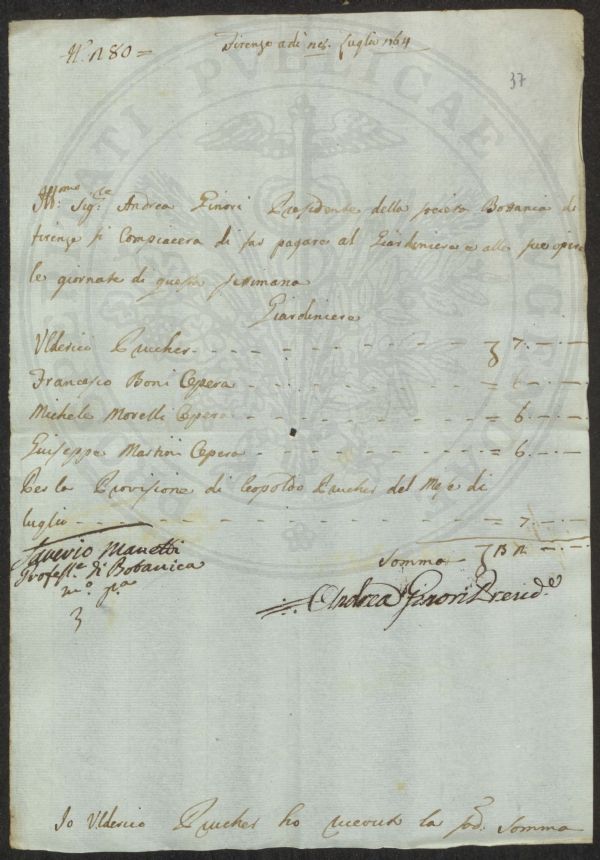 Nº. 1280 =
Firenze adì 28. Luglio 1764
37
Ill.mo Sig.re Andrea Ginori Presidente della società Bottanica di
firenze si Compiacera di far pagare al Giardiniere e alle sue opere
le giornate di questa settimana
Giardiniere
Ulderico Prucher - - - - - - - - - 7. - . -
Francesco Boni Opera - - - - - - - - = 6. - . -
Michele Morelli Opera - - - - - - - - = 6. - . -
Giuseppe Martini Opera - - - - - - - - = 6. - . -
Per la Provisione di Leopoldo Prucher del Mese di
luglio - - - - - - - - - = 7. - . -
Saverio Manetti
Profess.e di Botanica
m.o p.a
Somma
Andrea Ginori Presid.e
Io Ulderico Prucher ho riceuto la sud.a Somma